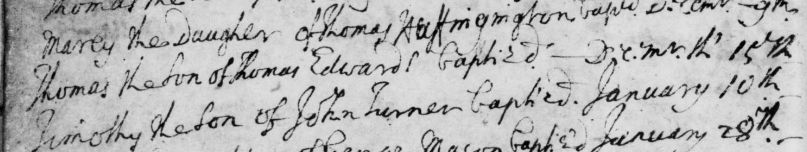 Thomas the
Marey the Daugher of Thomas Huffingington bapt'd Decemr 9th
Thomas the Son of Thomas Edwards baptied Decmr. th 15th
Timothy the Son of John Turner baptied. January 10th
Mason baptied January 28th